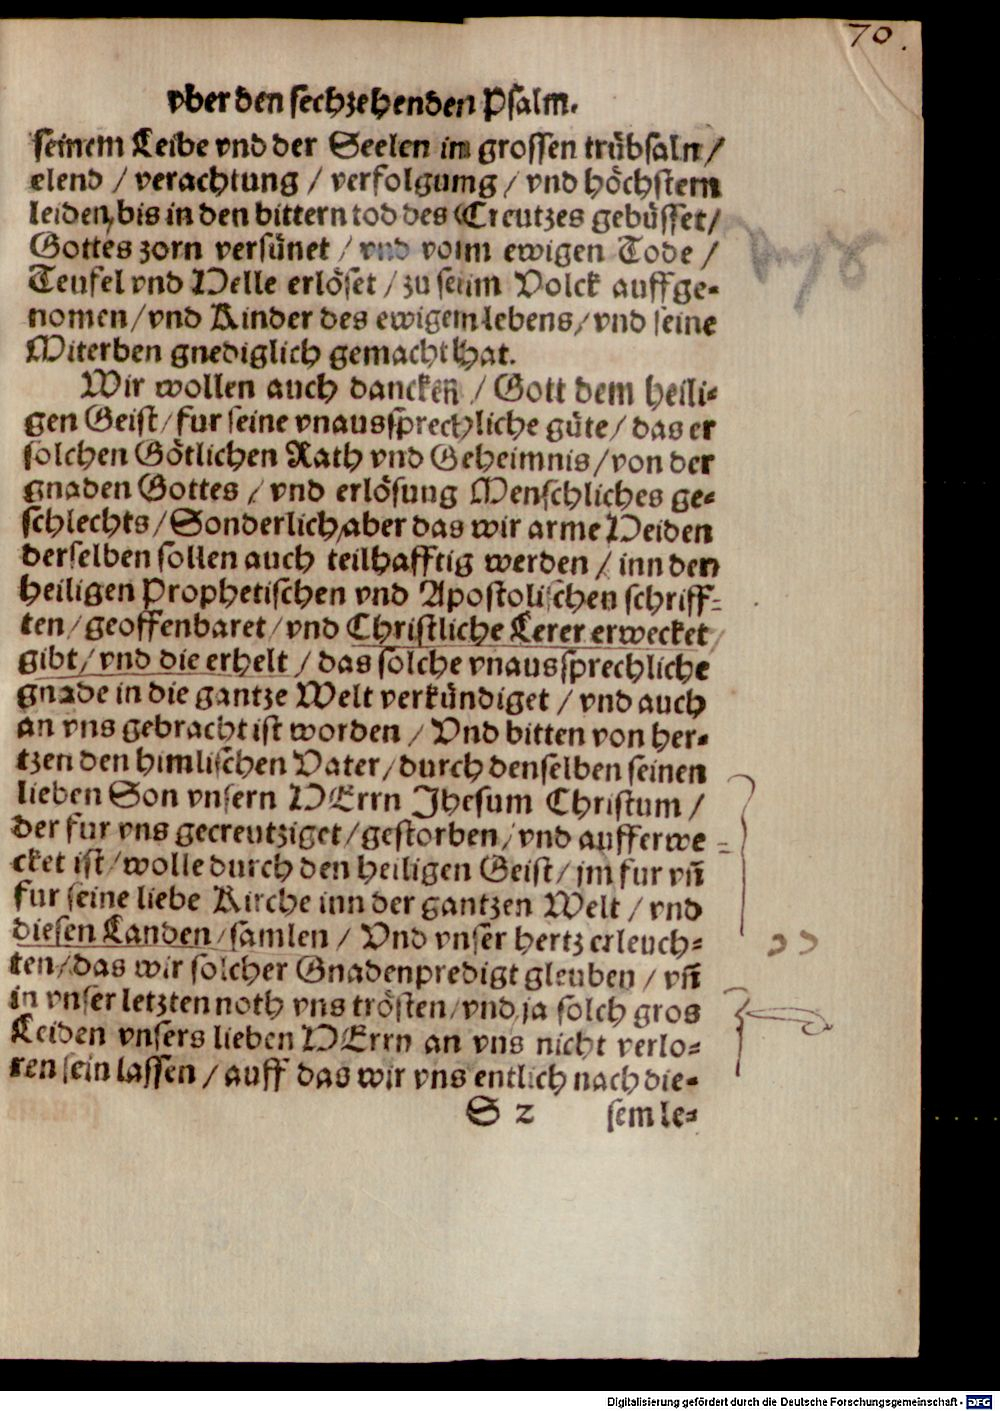 70.
vber den sechzehenden Psalm.
seinem Leibe vnd der Seelen in grossen trübsaln /
elend / verachtung / verfolgumg / vnd höchstem
leiden, bis in den bittern tod des Creutzes gebüsset /
Gottes zorn versünet / vnd vom ewigen Tode /
Teufel vnd Helle erlöset / zu seim Volck auffge-
nomen / vnd Kinder des ewigem lebens / vnd seine
Miterben gnediglich gemacht hat.
Wir wollen auch dancken / Gott dem heili-
gen Geist / fur seine vnaussprechliche güte / das er
solchen Götlichen Rath vnd Geheimnis / von der
gnaden Gottes / vnd erlösung Menschliches ge-
schlechts / Sonderlich, aber das wir arme Heiden
derselben sollen auch teilhafftig werden / inn den
heiligen Prophetischen vnd Apostolischen schriff-
ten / geoffenbaret / vnd Christliche Lerer erwecket /
gibt / vnd die erhelt / das solche vnaussprechliche
gnade in die gantze Welt verkündiget / vnd auch
an vns gebracht ist worden / Vnd bitten von her-
tzen den himlischen Vater / durch denselben seinen
lieben Son vnsern HErrn Jhesum Christum /
der fur vns gecreutziget / gestorben / vnd aufferwe
cket ist / wolle durch den heiligen Geist / jm fur vñ
fur seine liebe Kirche inn der gantzen Welt / vnd
diesen Landen / samlen / Vnd vnser hertz erleuch-
ten / das wir solcher Gnadenpredigt gleuben / vñ
in vnser letzten noth vns trösten / vnd ja solch gros
Leiden vnsers lieben HErrn an vns nicht verlo-
ren sein lassen / auff das wir vns entlich nach die-
S 2 sem le-
Digitalisierung gefördert durch die Deutsche Forschungsgemeinschaft - DFG